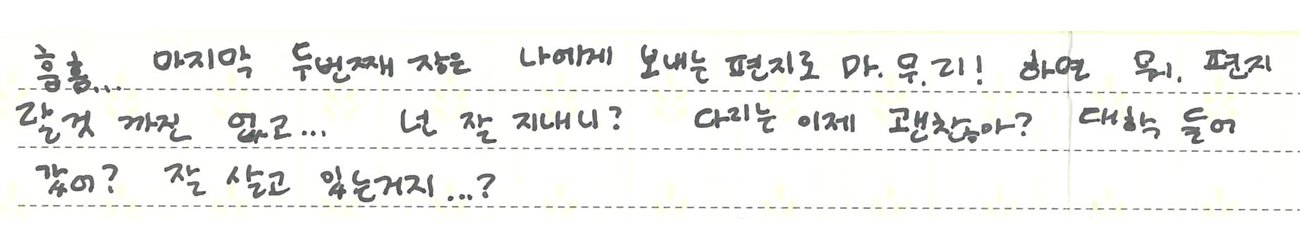 흠흠... 마지막 두번째 장은 나에게 보내는 편지로 마.무.리! 하면 뭐, 편지
랄것 까진 없고... 넌 잘 지내니? 다리는 이제 괜찮아? 대학 들어
갔어? 잘 살고 있는거지...?